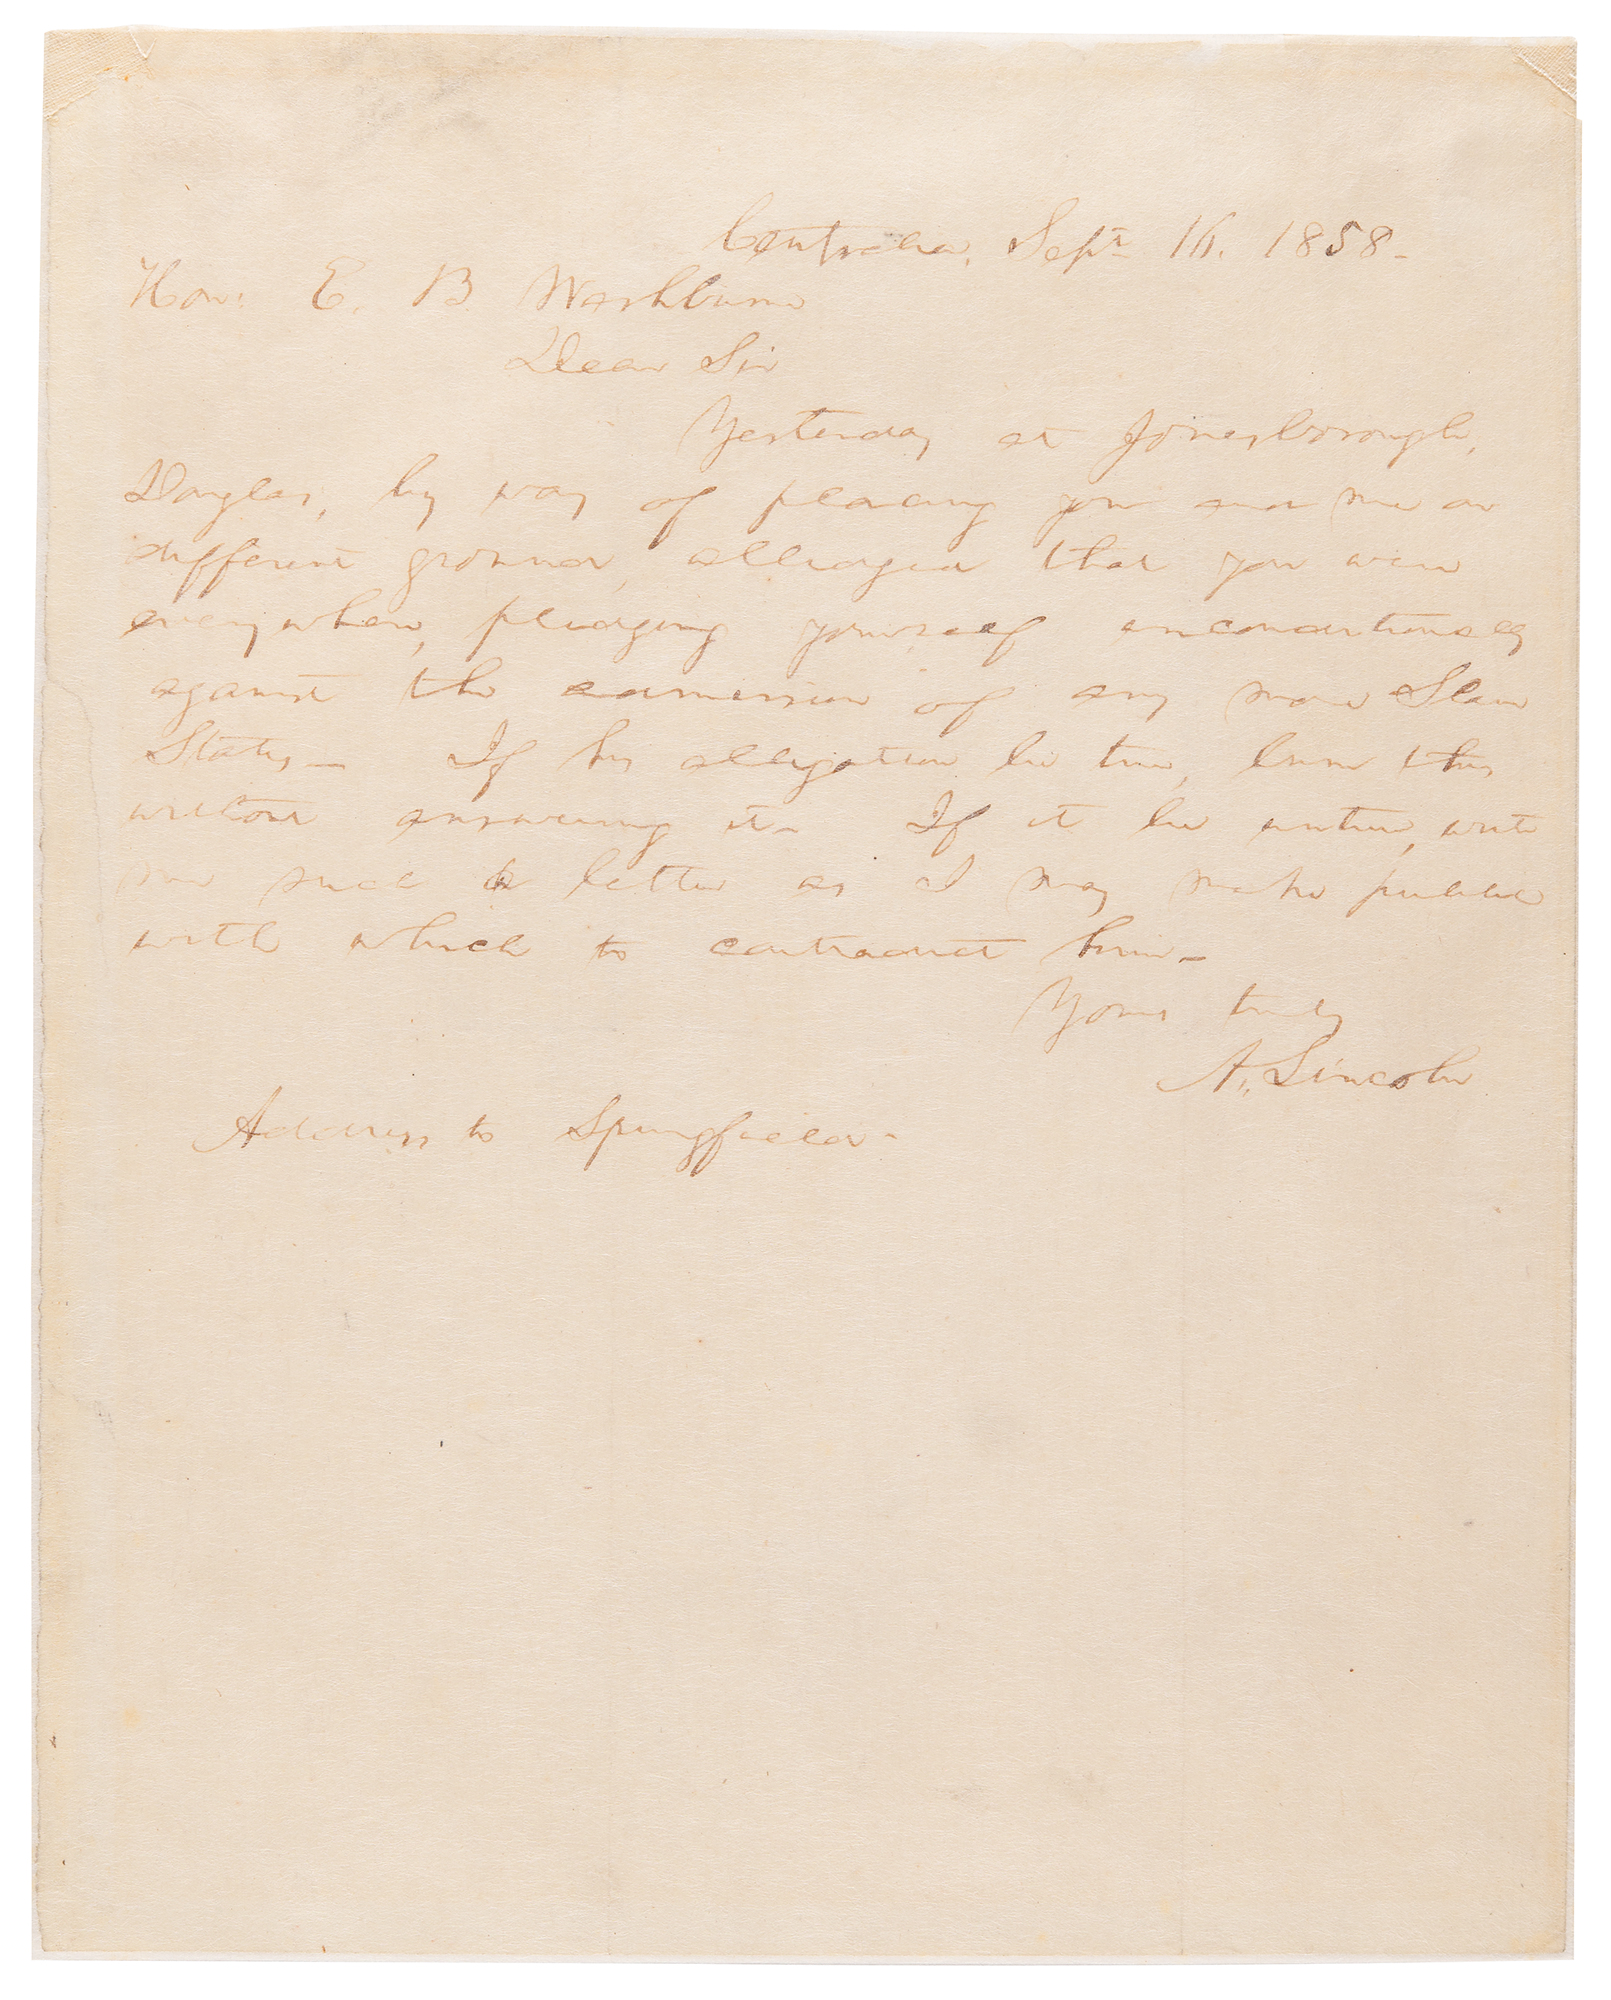 Centralia, Sept. 16. 1858-
Hon: E. B. Washburne
Dear Sir
Yesterday at Jonesborough,
Douglas, by way of placing you and me on
different ground, alledged that you were
everywhere, pledging yourself unconditionally
against the admission of any more Slave
States- If his allegation be true, burn this
without answering it- If it be untrue, write
me such a letter as I may make public
with which to contradict him-
Yours truly
A. Lincoln
Address to Springfield-